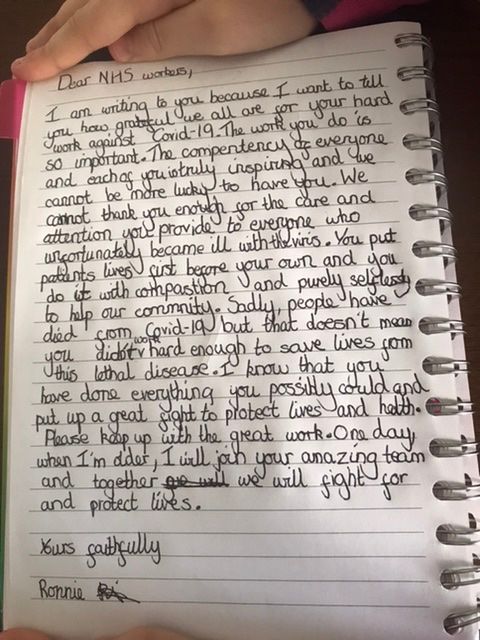 Dear NHS workers,
I am writing to you because I want to tell
you how grateful we all are for your hard
work against Covid-19. The work you do is
so important. The compertency of everyone
and each of you is truly inspiring and we
cannot be more lucky to have you. We
cannot thank you enough for the care and
attention you provide to everyone who
unfortunately became ill with the viris. You put
patients lives first before your own and you
do it with compastion and purely selflessly
to help our community. Sadly, people have
died from Covid-19 but that doesn't mean
you didn't work hard enough to save lives from
this lethal disease. I know that you
have done everything you possibly could and
put up a great fight to protect lives and health.
Please keep up with the great work. One day,
when I'm older, I will join your amazing team
and together we will fight for
and protect lives.
Yours faithfully
Ronnie